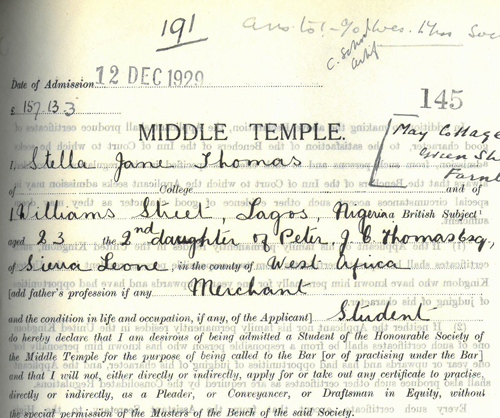 191
C. School
Date of Admission 12 DEC 1929
£157.13.3
145
MIDDLE TEMPLE.
May Cottage
Green St
Farn
I, Stella Jane Thomas
of College and of
1 Williams Street, Lagos, Nigeria British Subject
aged 23 the 2nd daughter of Peter J. C. Thomas Esq,
of Sierra Leone, in the county of West Africa
[add father's profession if any Merchant
and the condition in life and occupation, if any, of the Applicant] Student
do hereby declare that I am desirous of being admitted a Student of the Honourable Society of
the Middle Temple for the purpose of being called to the Bar [or of practising under the Bar]
and that I will not, either directly or indirectly, apply for or take out any certificate to practise,
directly or indirectly, as a Pleader, or Conveyancer, or Draftsman in Equity, without
the special permission of the Masters of the Bench of the said Society.